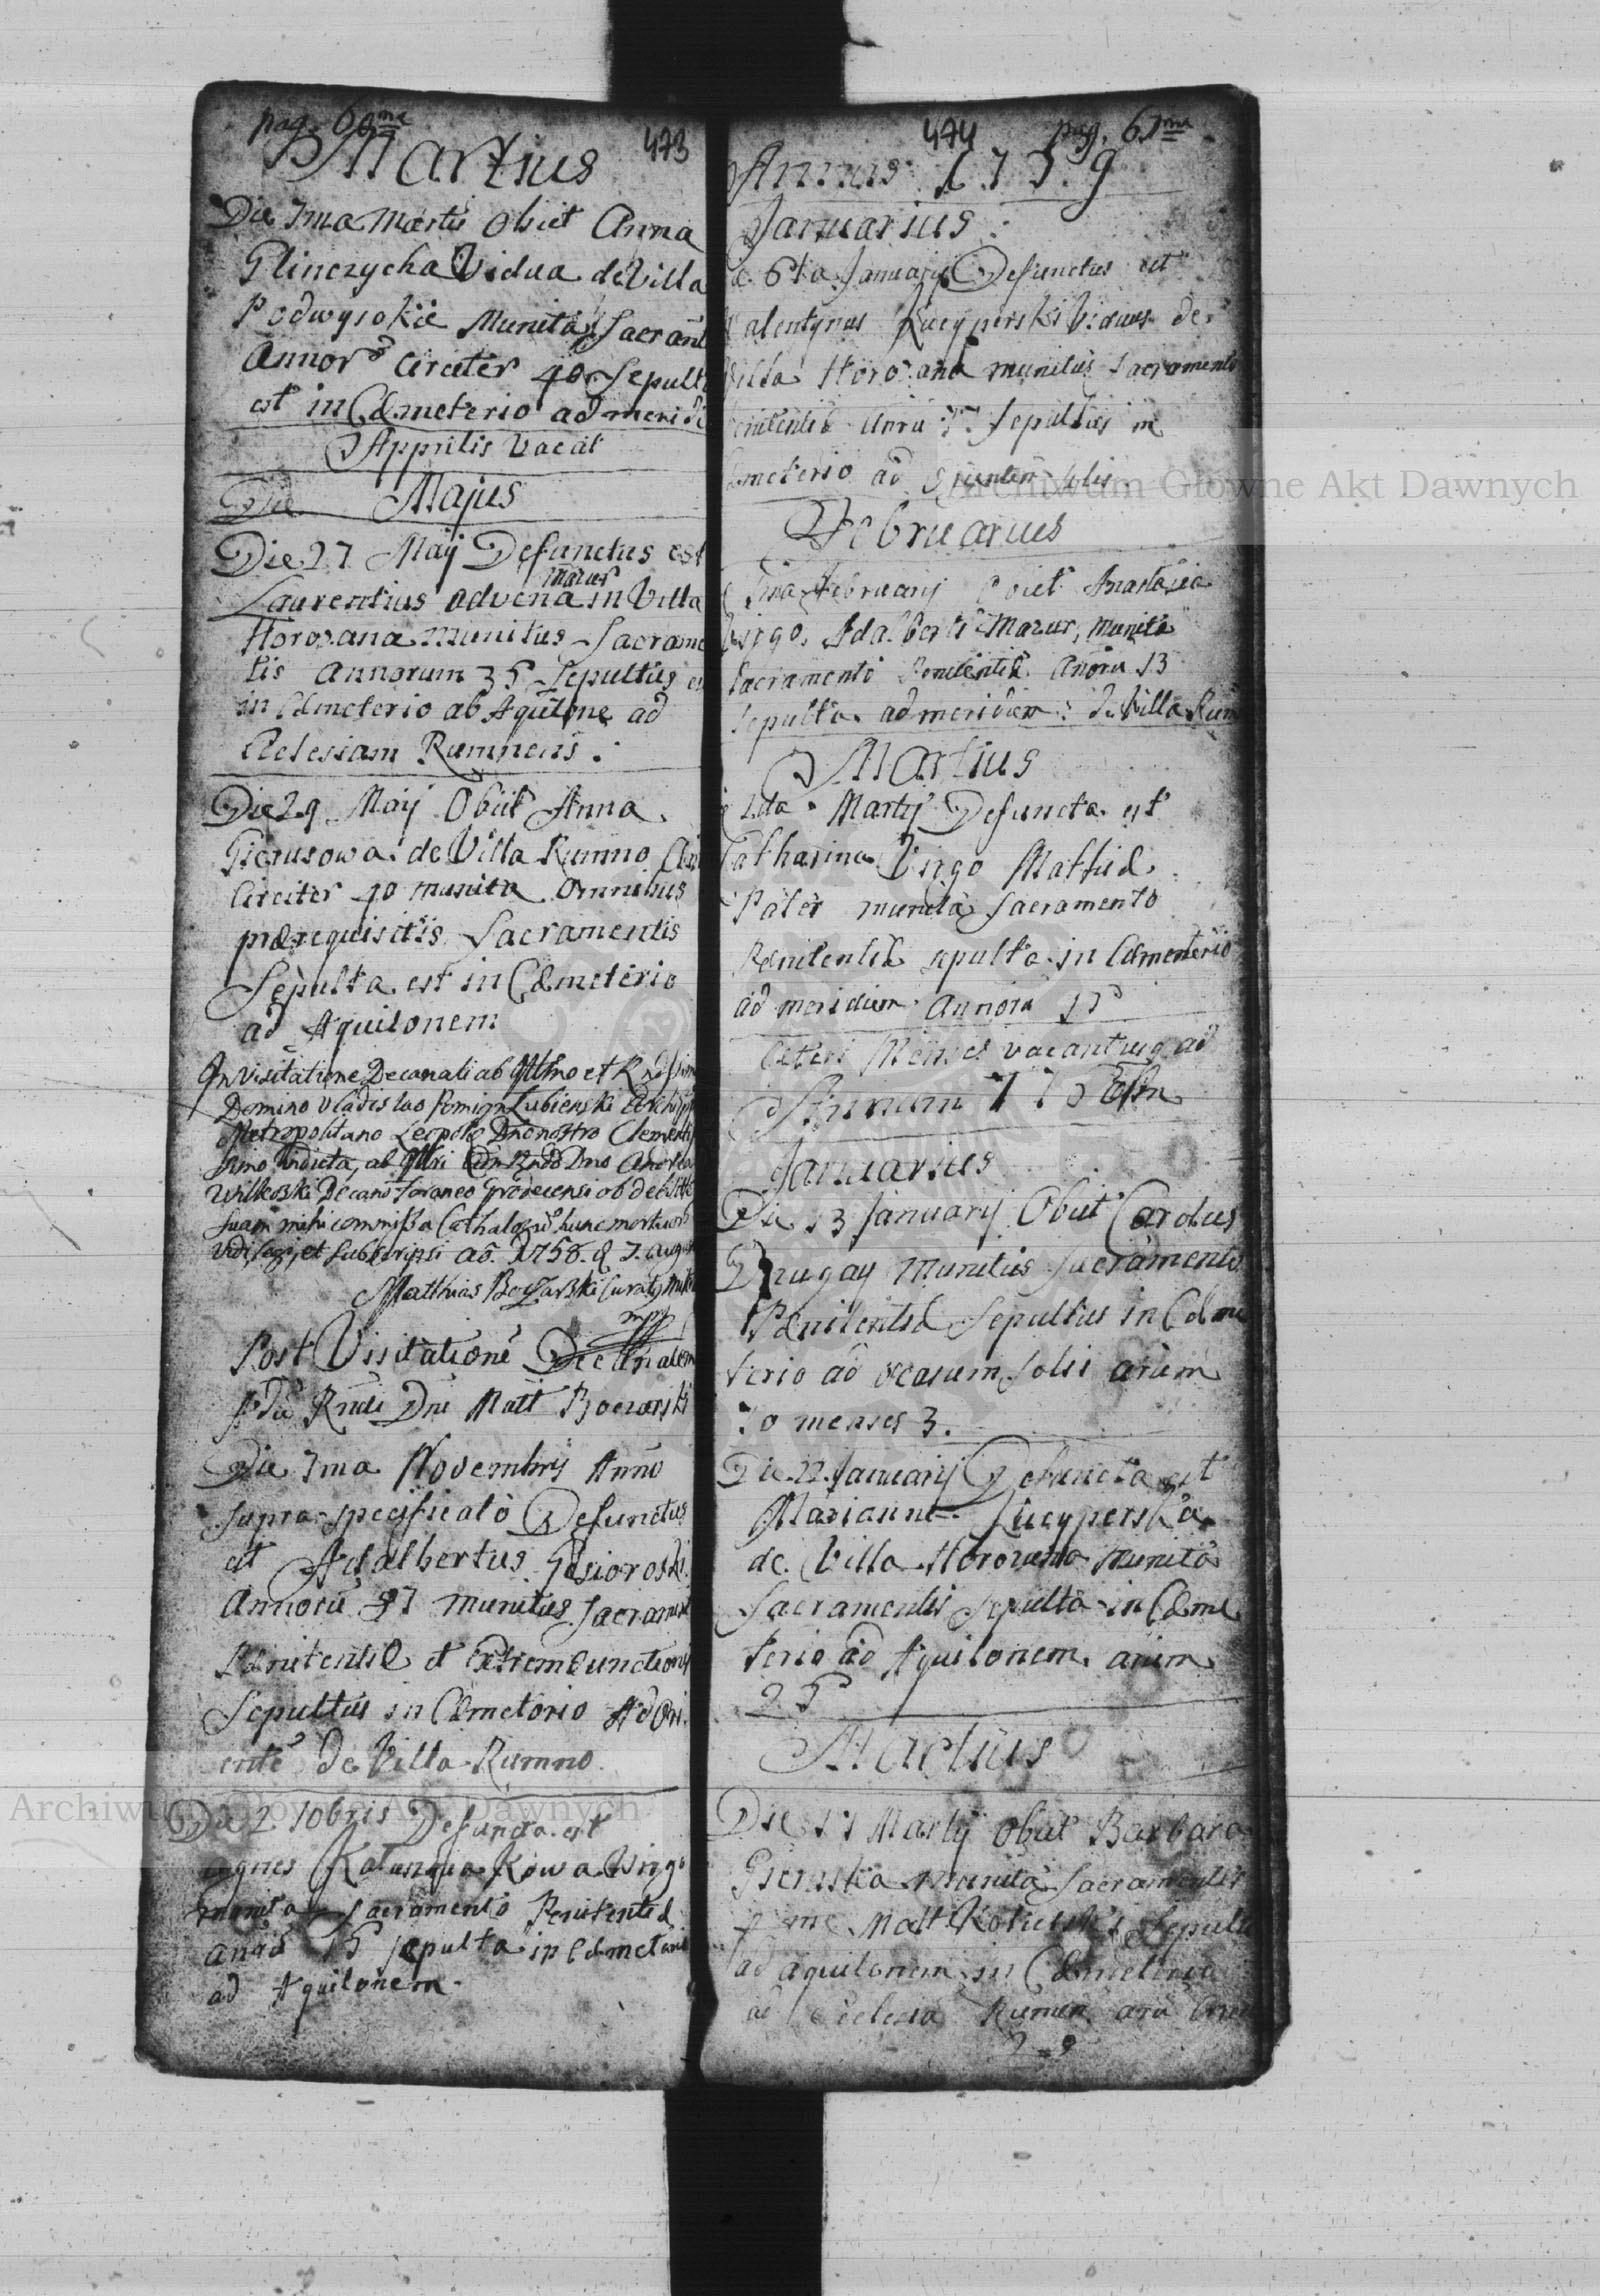 pag. 60ma
473
Martius
Die 1ma Martii Obiit Anna
Glinczycka Vidua de Villa
Podwysokie Munita Sacrant
Annor circiter 40 Sepulta
est in Cæmeterio ad meridi
Apprilis vacat
Die Majus
Die 27 Maij Defunctus est
Mazur
Laurentius advena in Villa
Horozana munitus Sacrame
tis Annorum 35 Sepultus e
in Cæmeterio ab Aquilone ad
Eclesiam Rumnens:
Die 29 Maij Obiit Anna
Gierusowa de Villa Rumno
Circiter 40 munita omnibus
prærequisitis Sacramentis
Sepulta est in Cæmeterio
ad Aquilonem
In Visitatione Decanali ab Illmo et Rndssimo
Domino Vladislao Lubienski Archiepp
Metropolitano Leopol Dno nostro Clementis
simo indicta, ab Illri Adm Rndo Dno Andrea
Wilkoski Decano foraneo Grodecensi ob debilit
suam mihi commissa Cathalogum hunc mortuor
vidi, legi, et subscripsi aō. 1758. d 7. Augu
Matthias Boczarski Curat
mpp
Post Visitationē Decanalem
Rndi Dni Matt Boczarski
Die 1ma Novembris Anno
supra specificato Defunctus
est Adalbertus Gosioroski
Annorū 97 munitus Sacrament
Pænitentiæ et Extremæ unctionis
Sepultus in Cæmeterio Ad Ori
entē de Villa Rumno
Die 2 10bris Defuncta est
Agnes Virgo
munita Sacramento Penitentiæ
anor 15 sepulta in Cæmeterio
ad Aquilonem
474 pag. 61ma
Annus 1759
Januarius:
6ta Januarij Defunctus est
alentynus Kucyperski Viduus de
Villa Horozana munitus Sacramento
enitentiæ Sepultus in
æmeterio ad solis
Februarius
1ma Februarij Obiit Anastasia
Virgo, Adalberti Mazur, munita
Sacramento Penitentiæ Anōru 13
Sepulta ad meridiem: de Villa Rum
Martius
Martij Defuncta est
Catharina Virgo Mathiæ
Pater munita Sacramento
Pænitentiæ sepulta in Cæmeterio
ad meridiem Annōru
Ceteri Menses vacant usq ad
Annum
Januarius
Die 13 Januarij Obiit Carolus
munitus Sacramento
Pænitentiæ Sepultus in Cæme
terio ad ocasum solis
70 menses 3.
Die 22 Januarij Defuncta est
Marianna Kucyperska
de Villa Horozana munita
Sacramentis Sepulta in Cæme
terio ad Aquilonem
25
Martius
Die 17 Martij Obiit Barbara
Gieruska Munita Sacramentis
p me Matt Sepulta
ad aquilonem in Cæmeterio
ad Ecclesia Rumen